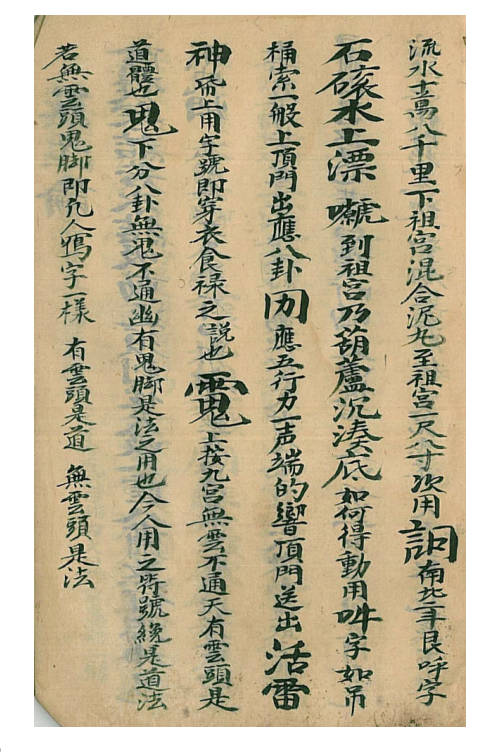 流水十二萬八千里下祖宮混合泥丸至祖宮一尺八寸次用䛛布北二年艮呼字
石磙水上漂 嚇到祖宮乃葫蘆沉湊底如何得動用吽字如吊
桶索一般上頂門出應八卦囚應五行力一声端的響頂門送出活雷
神 符上用字號即穿衣食禄之説也䨠上接九宮無雲不通天有雲頭是
道體也鬼下分八卦無鬼不通幽有鬼脚是法之用也今人用之符號纔是道法
若無雲頭鬼脚即凡人寫字一樣 有雲頭是道 無雲頭是法